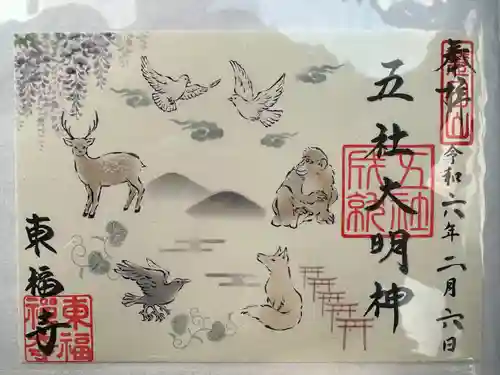 奉拝
令和六年二月六日
五社大明神
五社
成就
東福寺
東福
禅寺